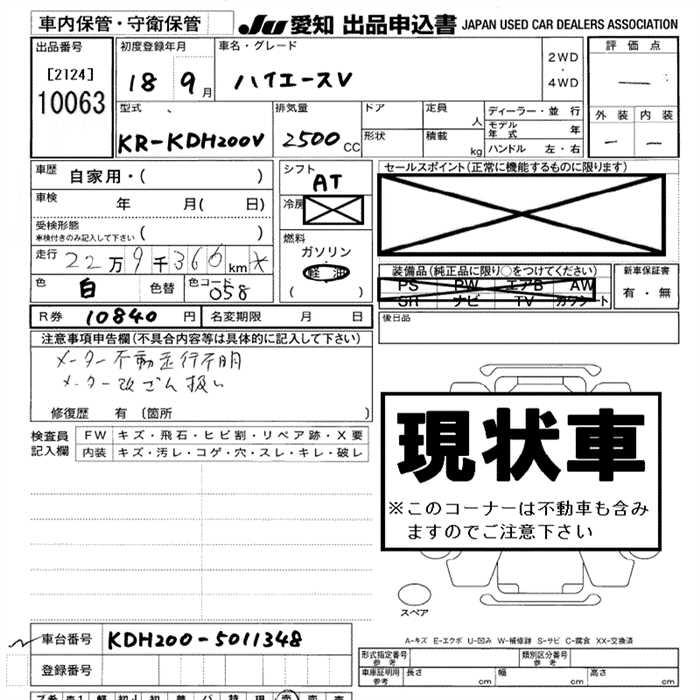 車内保管・守衛保管 JU 愛知 出品申込書 JAPAN USED CAR DEALERS ASSOCIATION
出品番号 初度登録年月 車名・グレード 評価点
[2124] 18 9月 ハイエースV 2WD・4WD —
10063 外装 内装
型式 排気量 ドア 定員 人 ディーラー・並行
モデル年式 年 — —
KR-KDH200V 2500CC 形状 積載 kg ハンドル 左・右
車歴 自家用・( ) シフト AT セールスポイント(正常に機能するものに限ります)
車検 年 月( 日) 冷房
受検形態
車検付きのみ記入して下さい ( ) 燃料 ガソリン
走行 22万9千366km* 軽油 装備品(純正品に限り○をつけてください) 新車保証書
色 白 色替 色コード 058 ( ) PS PW エアB AW 有・無
SR ナビ TV カワシート
R券 10840円 名変期限 月 日 後日品
注意事項申告欄(不具合内容等は具体的に記入して下さい)
メーター不動走行不明
メーター改ざん扱い
修復歴 有 (箇所 )
検査員 FW キズ・飛石・ヒビ割・リペア跡・X要
記入欄 内装 キズ・汚レ・コゲ・穴・スレ・キレ・破レ
現状車
※このコーナーは不動車も含み
ますのでご注意下さい
スペア
A-キズ E-エクボ U-凹み W-補修跡 S-サビ C-腐食 XX-交換済
車台番号 KDH200-5011348
登録番号
形式指定番号 参考 類別区分番号 参考
車庫証明用 参考 長さ cm 幅 cm 高さ cm